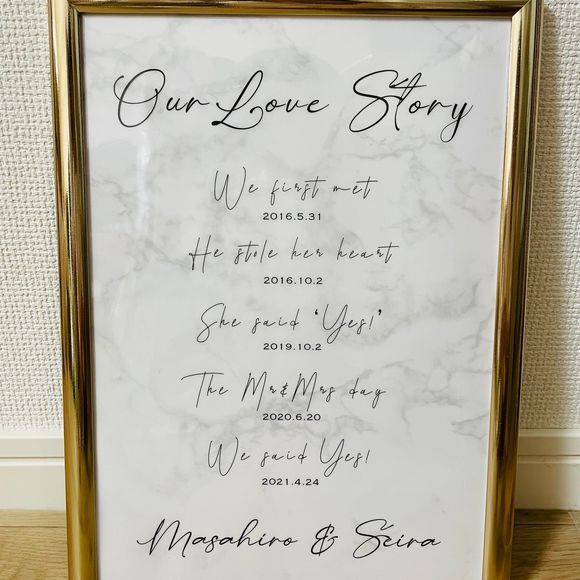 Our Love Story
We first met
2016.5.31
He stole her heart
2016.10.2
She said ‘Yes!’
2019.10.2
The Mr&Mrs day
2020.6.20
We said Yes!
2021.4.24
Masahiro & Seira